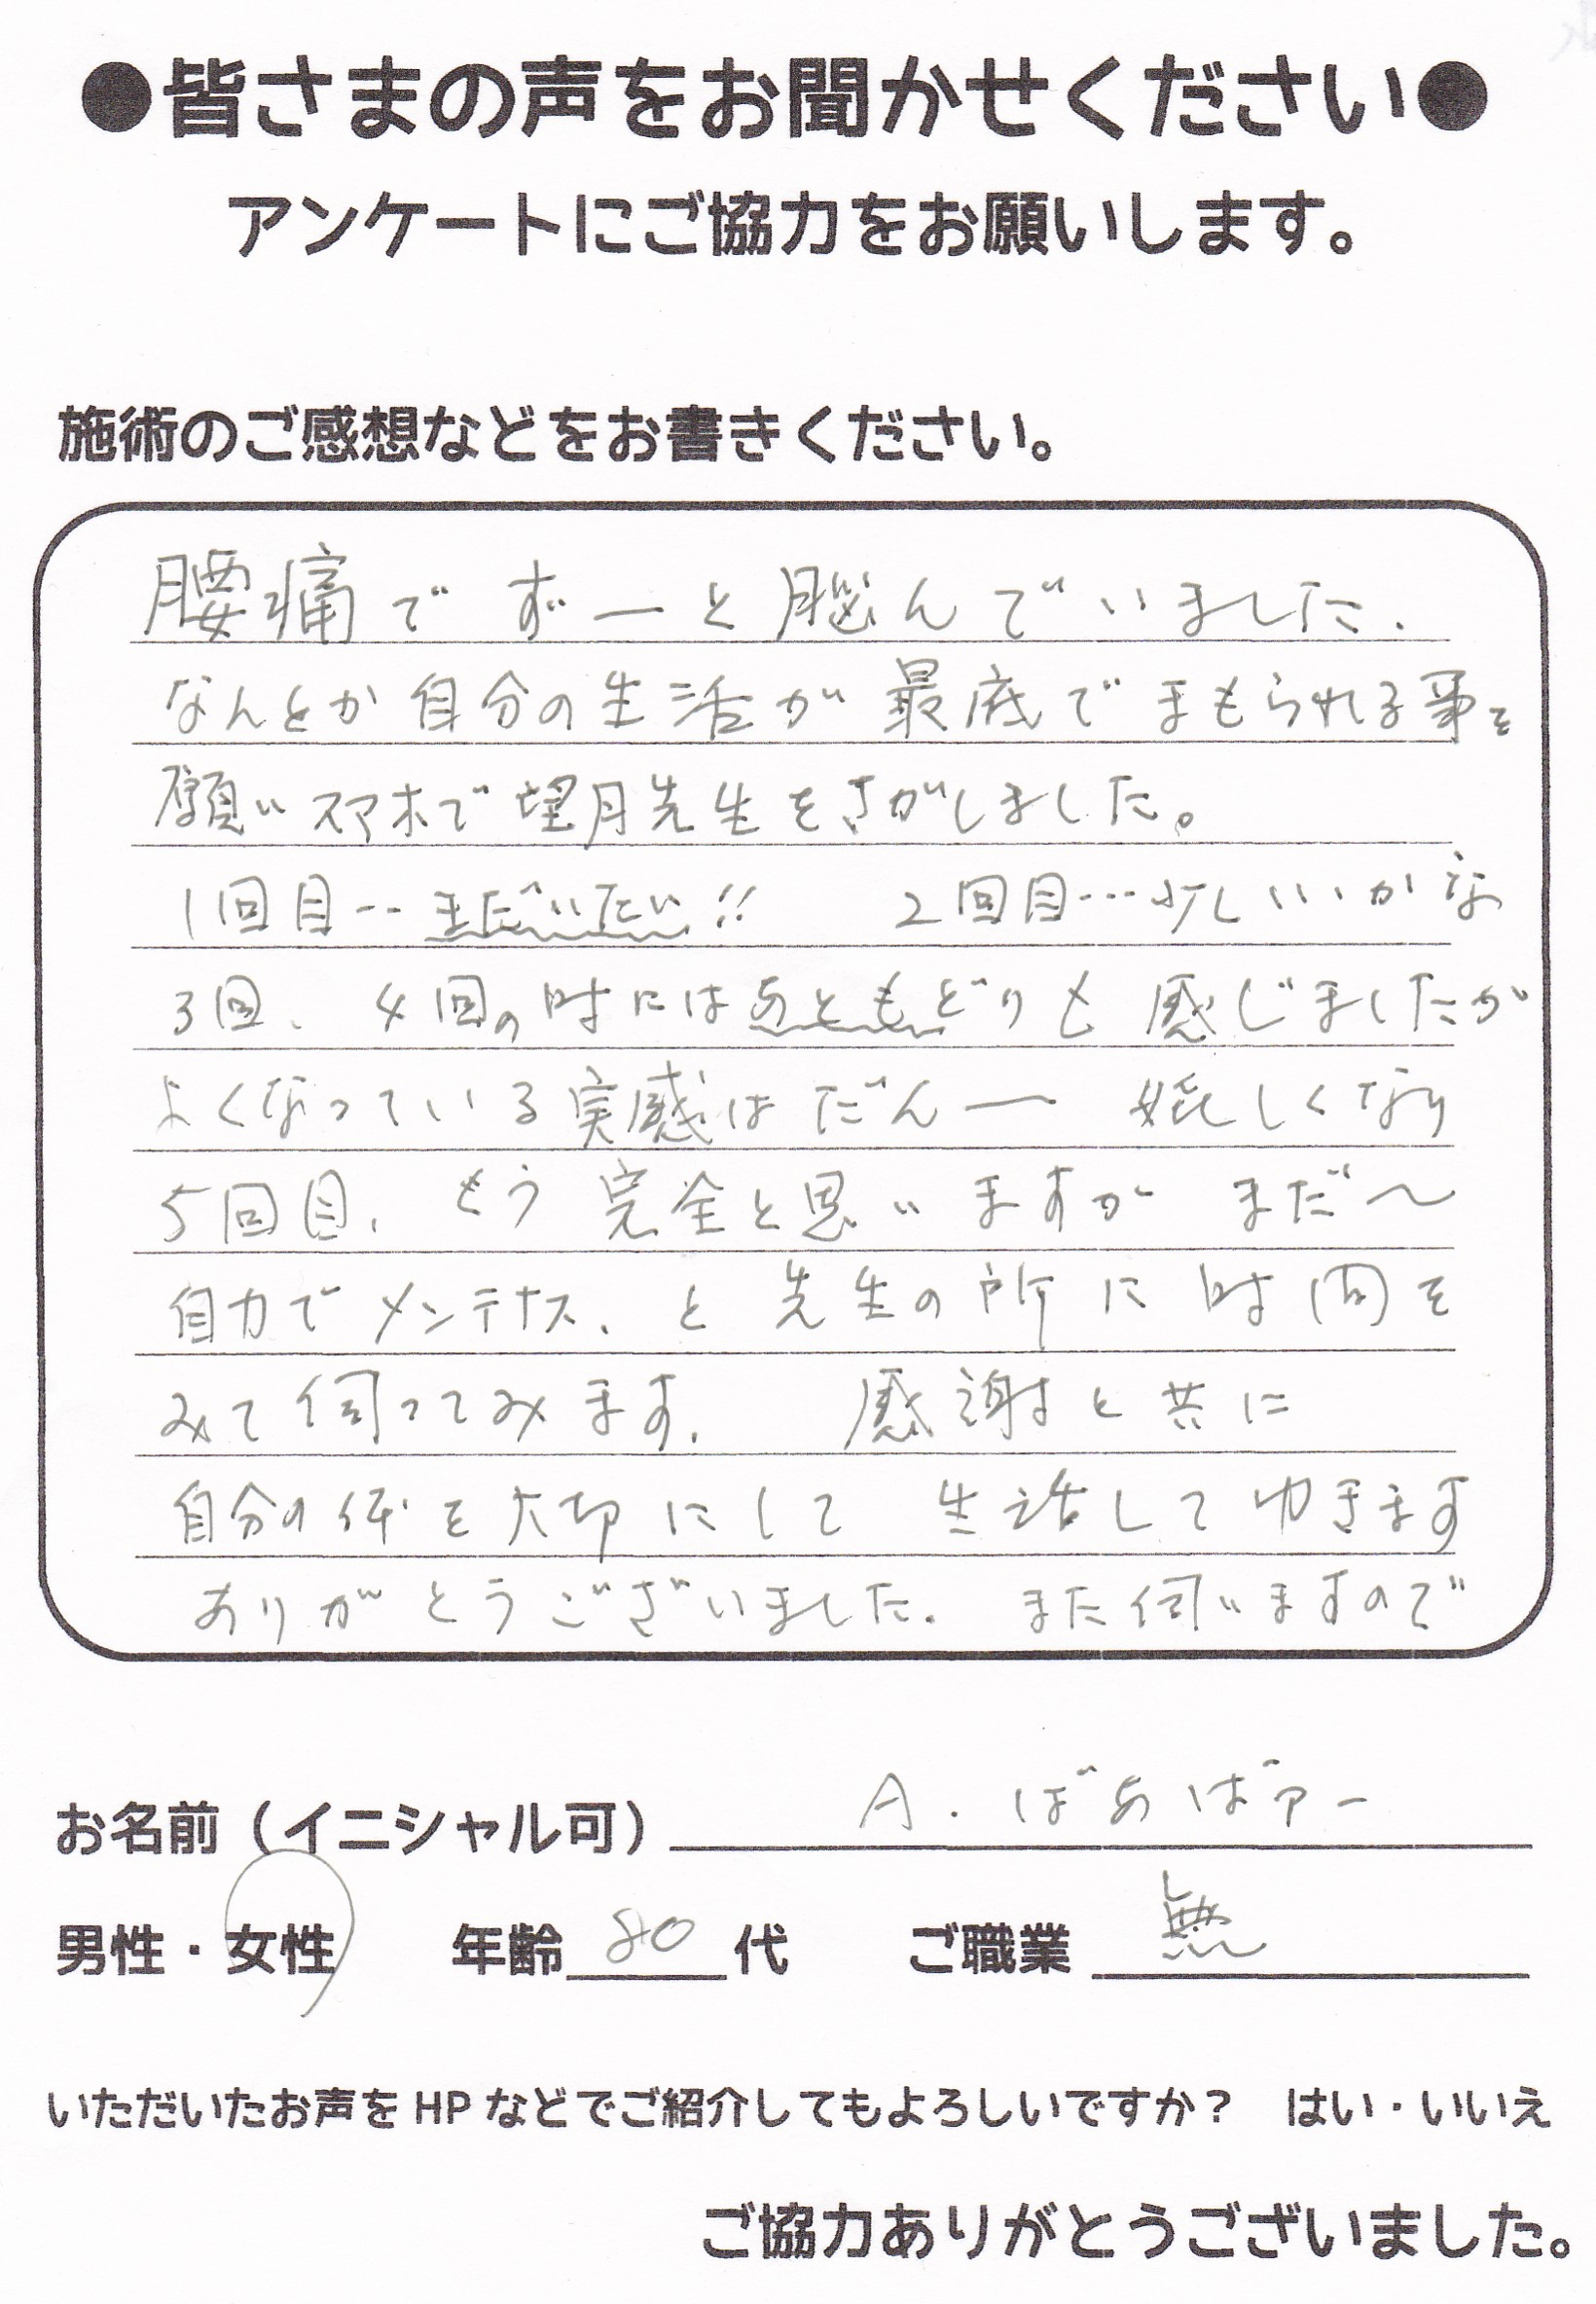 ●皆さまの声をお聞かせください●
アンケートにご協力をお願いします。
施術のご感想などをお書きください。
腰痛で ずーと脳んでいました.
なんとか自分の生活が最底でまもられる事を
願いスマホで望月先生をさがしました。
1回目‥まだいたい!! 2回目…少しいいかな
3回、4回の時にはあともどりも感じましたが
よくなっている実感はだんー 嬉しくなり
5回目、もう完全と思いますが まだ〜
自力でメンテナス、と先生の所に時間を
みて伺ってみます. 感謝と共に
自分の体を大切にして 生活してゆきます
ありがとうございました. また伺いますので
お名前（イニシャル可） A.ばあばァー
男性・女性 年齢 80 代 ご職業 無し
いただいたお声をHPなどでご紹介してもよろしいですか？ はい・いいえ
ご協力ありがとうございました。